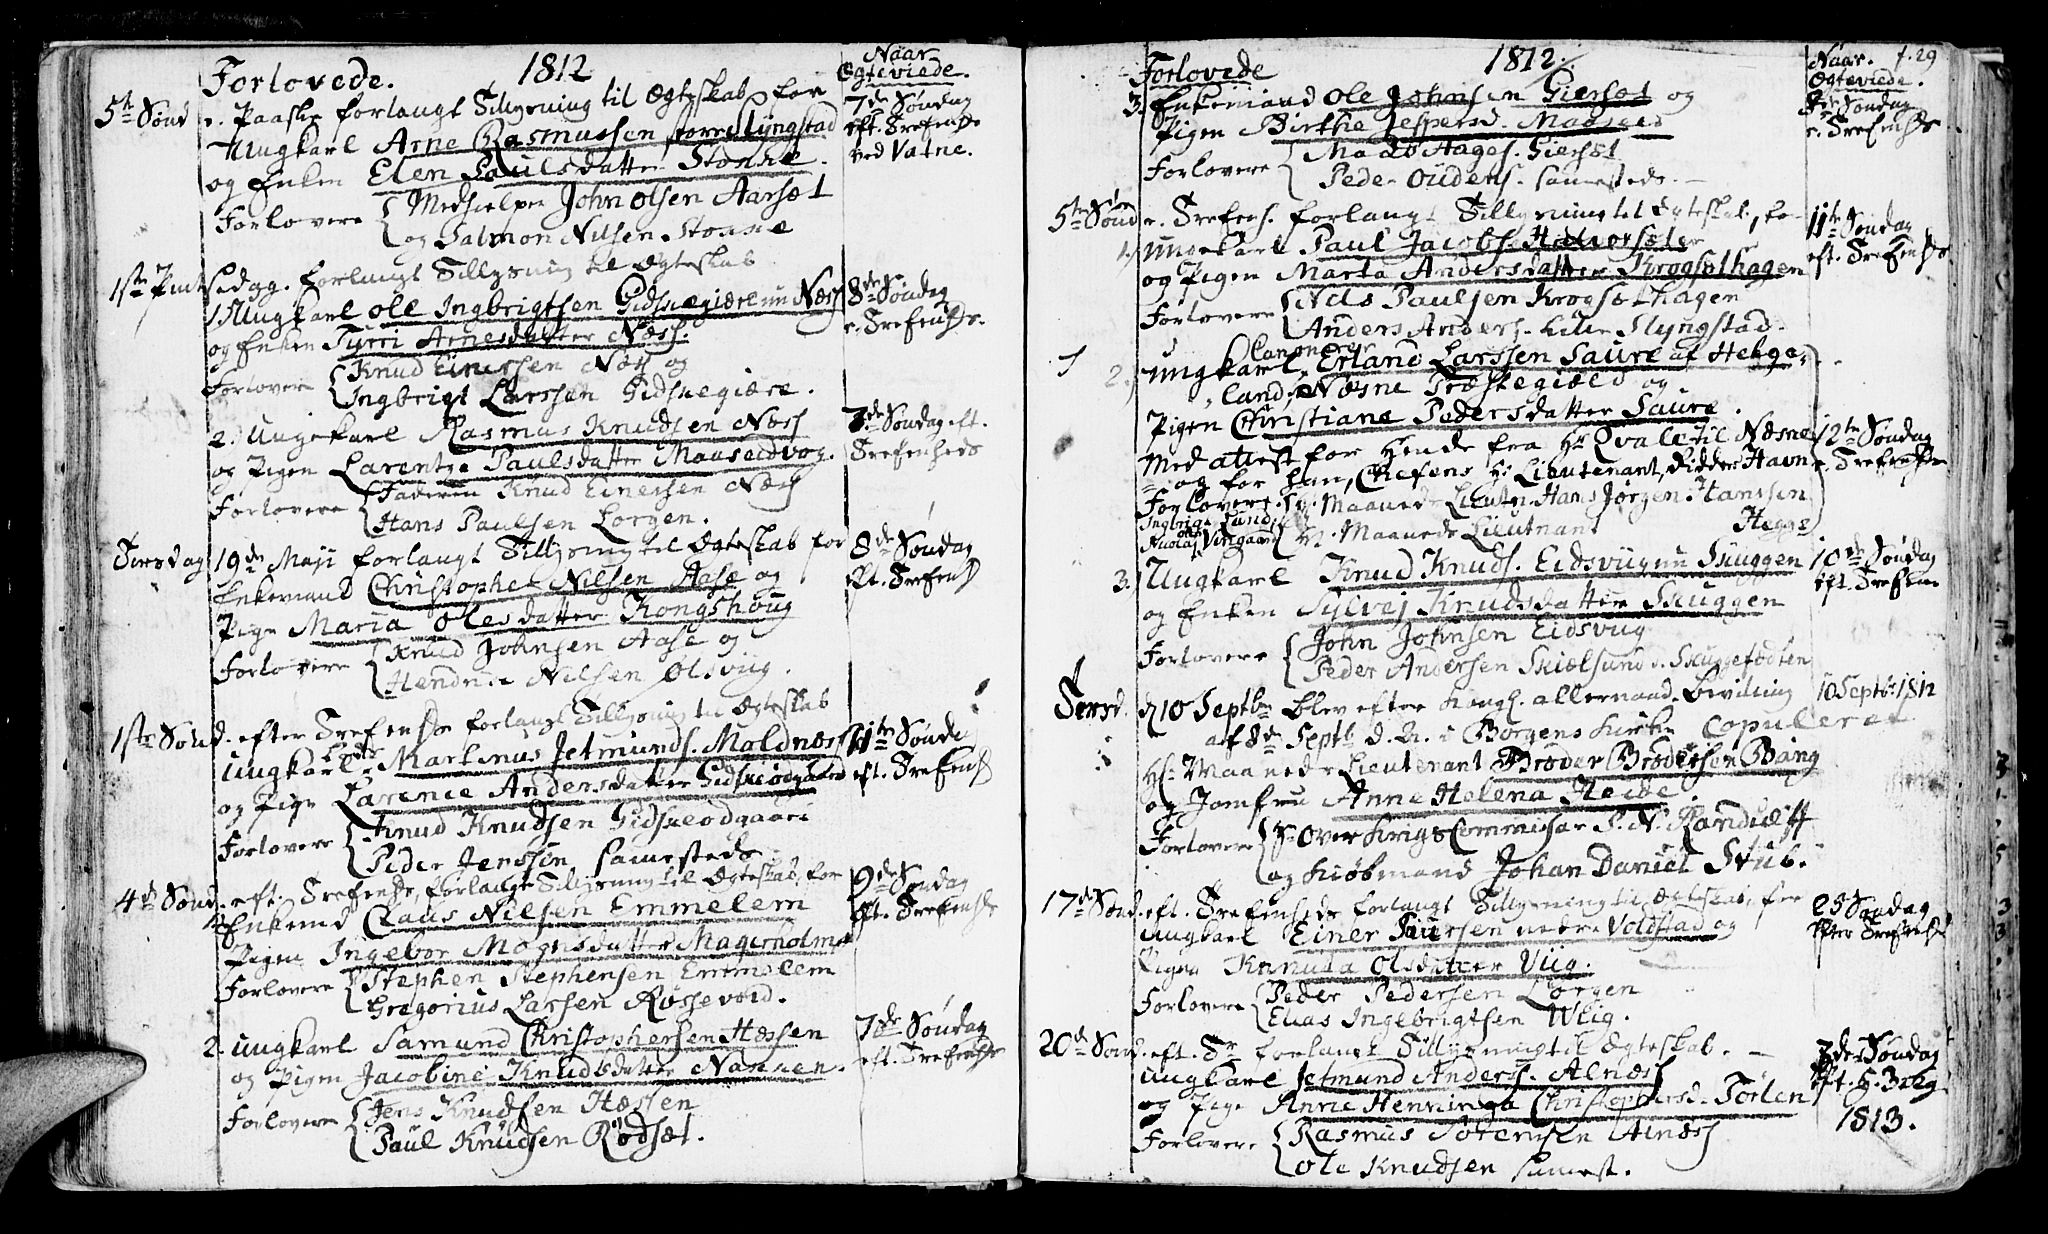 Forlovede. 1812 Naar Egteviede.
5te Sønd e. Paaske forlangt Tillysning til Egteskab for
Ungkarl Arne Rasmussen Store Slyngstad
og Enken Elen Paulsdatter Stonne.
Forlovere Medhielper John Olsen Aarsæt
og Salmon Nilsen Stonne
7de Søndag
eft. Trefenhds
ved Vatne.
1ste Pintsedag. forlangt Tillysning til Egteskab
1. Ungkarl Ole Ingbrigtsen Gidskegiære nu Næss
og Enken Tyrri Arnesdatter Næss.
Forlovere Knud Einersen Næss og
Ingbrigt Larssen Gidskegiære.
8de Søndag
e. Trefenhds.
2. Ungekarl Rasmus Knudsen Næss
og Pigen Larentze Paulsdatter Maaseidvog.
Forlovere Faderen Knud Einersen Næss
Hans Paulsen Lorgen.
7de Søndag eft.
Trefenheds
Tirsdag 19de Maji forlangt Tillysning til Egteskab for
Enkemand Christopher Nilsen Aase og
Pige Maria Olesdatter Kongshoug
Forlovere Knud Johnsen Aase og
Hendrik Nilsen Olsviig.
8de Søndag
eft. Trefenh
1ste Sønd. efter Trefenhds forlangt Tillysning til Egteskab
Ungkarl Martinus Jetmunds. Moldnæss
og Pige Larence Andersdatter Gidskeodgaard
Forlovere Knud Knudsen Gidskeodgaard
Peder Jenssen samesteds
11te Søndag
eft. Trefenh
4de Sønd. eft. Trefenhds, forlangt Tillysning til Egteskab for
1. Enkemd Claus Nilsen Emmelem
Pigen Ingebor Mogensdatter Magerholm
Forlovere Stephen Stephensen Emmelem
Gregorius Larsen Røssevold.
9de Søndag
eft. Trefenhds
2. Ungkarl Samund Christophersen Hæssen
og Pigen Jacobine Knudsdatter Nanken.
Forlovere Jens Knudsen Hæssen
Paul Knudsen Rødsæt.
7de Søndag
eft. Trefenhds
Forlovede 1812. Naar Egteviede. f. 29
3. Enkemand Ole Johnsen Giersæt og
Pigen Birthe Jespersd. Maaseid
Forlovere Mads Aages. Giersæt
Peder Oudens. samesteds.
Søndag
e. Trefenhds
5te Sønd e. Trefenh. forlangt Tillysning til Egteskab, for
1. Ungekarl Paul Jacobs. Halvorsæter
og Pigen Marta Andersdatter Krogsethagen
Forlovere Nils Paulsen Krogsethagen
Anders Anders. Lille Slyngstad.
11te Søndag
eft. Trefenhds
2. Ungkarl, Canonerer Erland Larssen Saure af Helge
land, Næsne Præstegiæld og
Pigen Christiane Pedersdatter Saure.
Med attest for Hende fra Hr Qvale til Næsne
og for ham, Chefens Hr Lieutenant, Didder Havn
Forlovere. Hr Maaneds Lieutn. Hans Jørgen Hanssen
Hr Maaneds Lieutnant Hegge
12te Søndag
e. Trefenhds
3. Ungkarl Knud Knuds. Eidsviig nu Skuggen
og Enken Sylvej Knudsdatter Skuggen
Forlovere John Johnsen Eidsvug
Peder Andersen Skiælsund
10de Søndag
eft. Trefen
Torsd. d 10 Septbr blev efter Kongl. allernaad. Bevilning
af 8de Septb. d. A. i Borgens Kirke Copuleret
Hr. Maaneds Lieutenant Brøder Brødersen Bang
og Jomfru Anne Helena Heide.
Forlovere Hr Over Krigs Commissar P. N. Randulff
og Kiøbmand Johan Daniel Stub.
10 Septbr 1812
17de Sønd. eft. Trefenheds forlangt Tillysning til Egteskab, for
Ungkarl Einer Iversen nedre Voldstad og
Pigen Knnuda Olsdatter Viig.
Forlovere Peder Pedersen Lorgen
Elias Ingebrigtsen Wiig.
23 Søndag
efter Trefenhd
20de Sønd. eft. Tr forlangt Tillysning til Egteskab.
Ungkarl Jetmund Anders. Alnæss
og Pige Anne Henninga Christophersd. Torlen
Forlovere Rasmus Sørensen Alnæss
Ole Knudsen samest.
3de Søndag
eft. H. 3 Kong
1813.